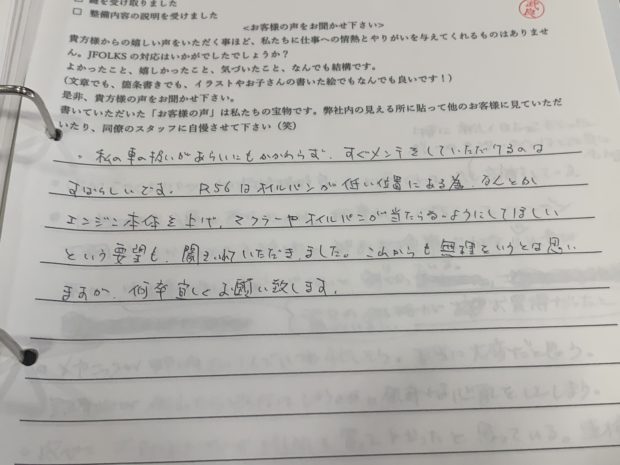 鍵を受け取りました
□ 整備内容の説明を受けました
<お客様の声をお聞かせ下さい>
貴方様からの嬉しい声をいただく事ほど、私たちに仕事への情熱とやりがいを与えてくれるものはありませ
ん。JFOLKSの対応はいかがでしたでしょうか？
よかったこと、嬉しかったこと、気づいたこと、なんでも結構です。
（文章でも、箇条書きでも、イラストやお子さんの書いた絵でもなんでも良いです！）
是非、貴方様の声をお聞かせ下さい。
書いていただいた「お客様の声」は私たちの宝物です。弊社内の見える所に貼って他のお客様に見ていただ
いたり、同僚のスタッフに自慢させて下さい（笑）
・私の車の扱いがあらいにもかかわらず、すぐメンテをしていただけるのは
すばらしいです。R56はオイルパンが低い位置にある為、なんとか
エンジン本体を上げ、マフラーやオイルパンが当たらないようにしてほしい
という要望も、聞き入れていただきました。これからも無理をいうとは思い
ますが、何卒宜しくお願い致します。